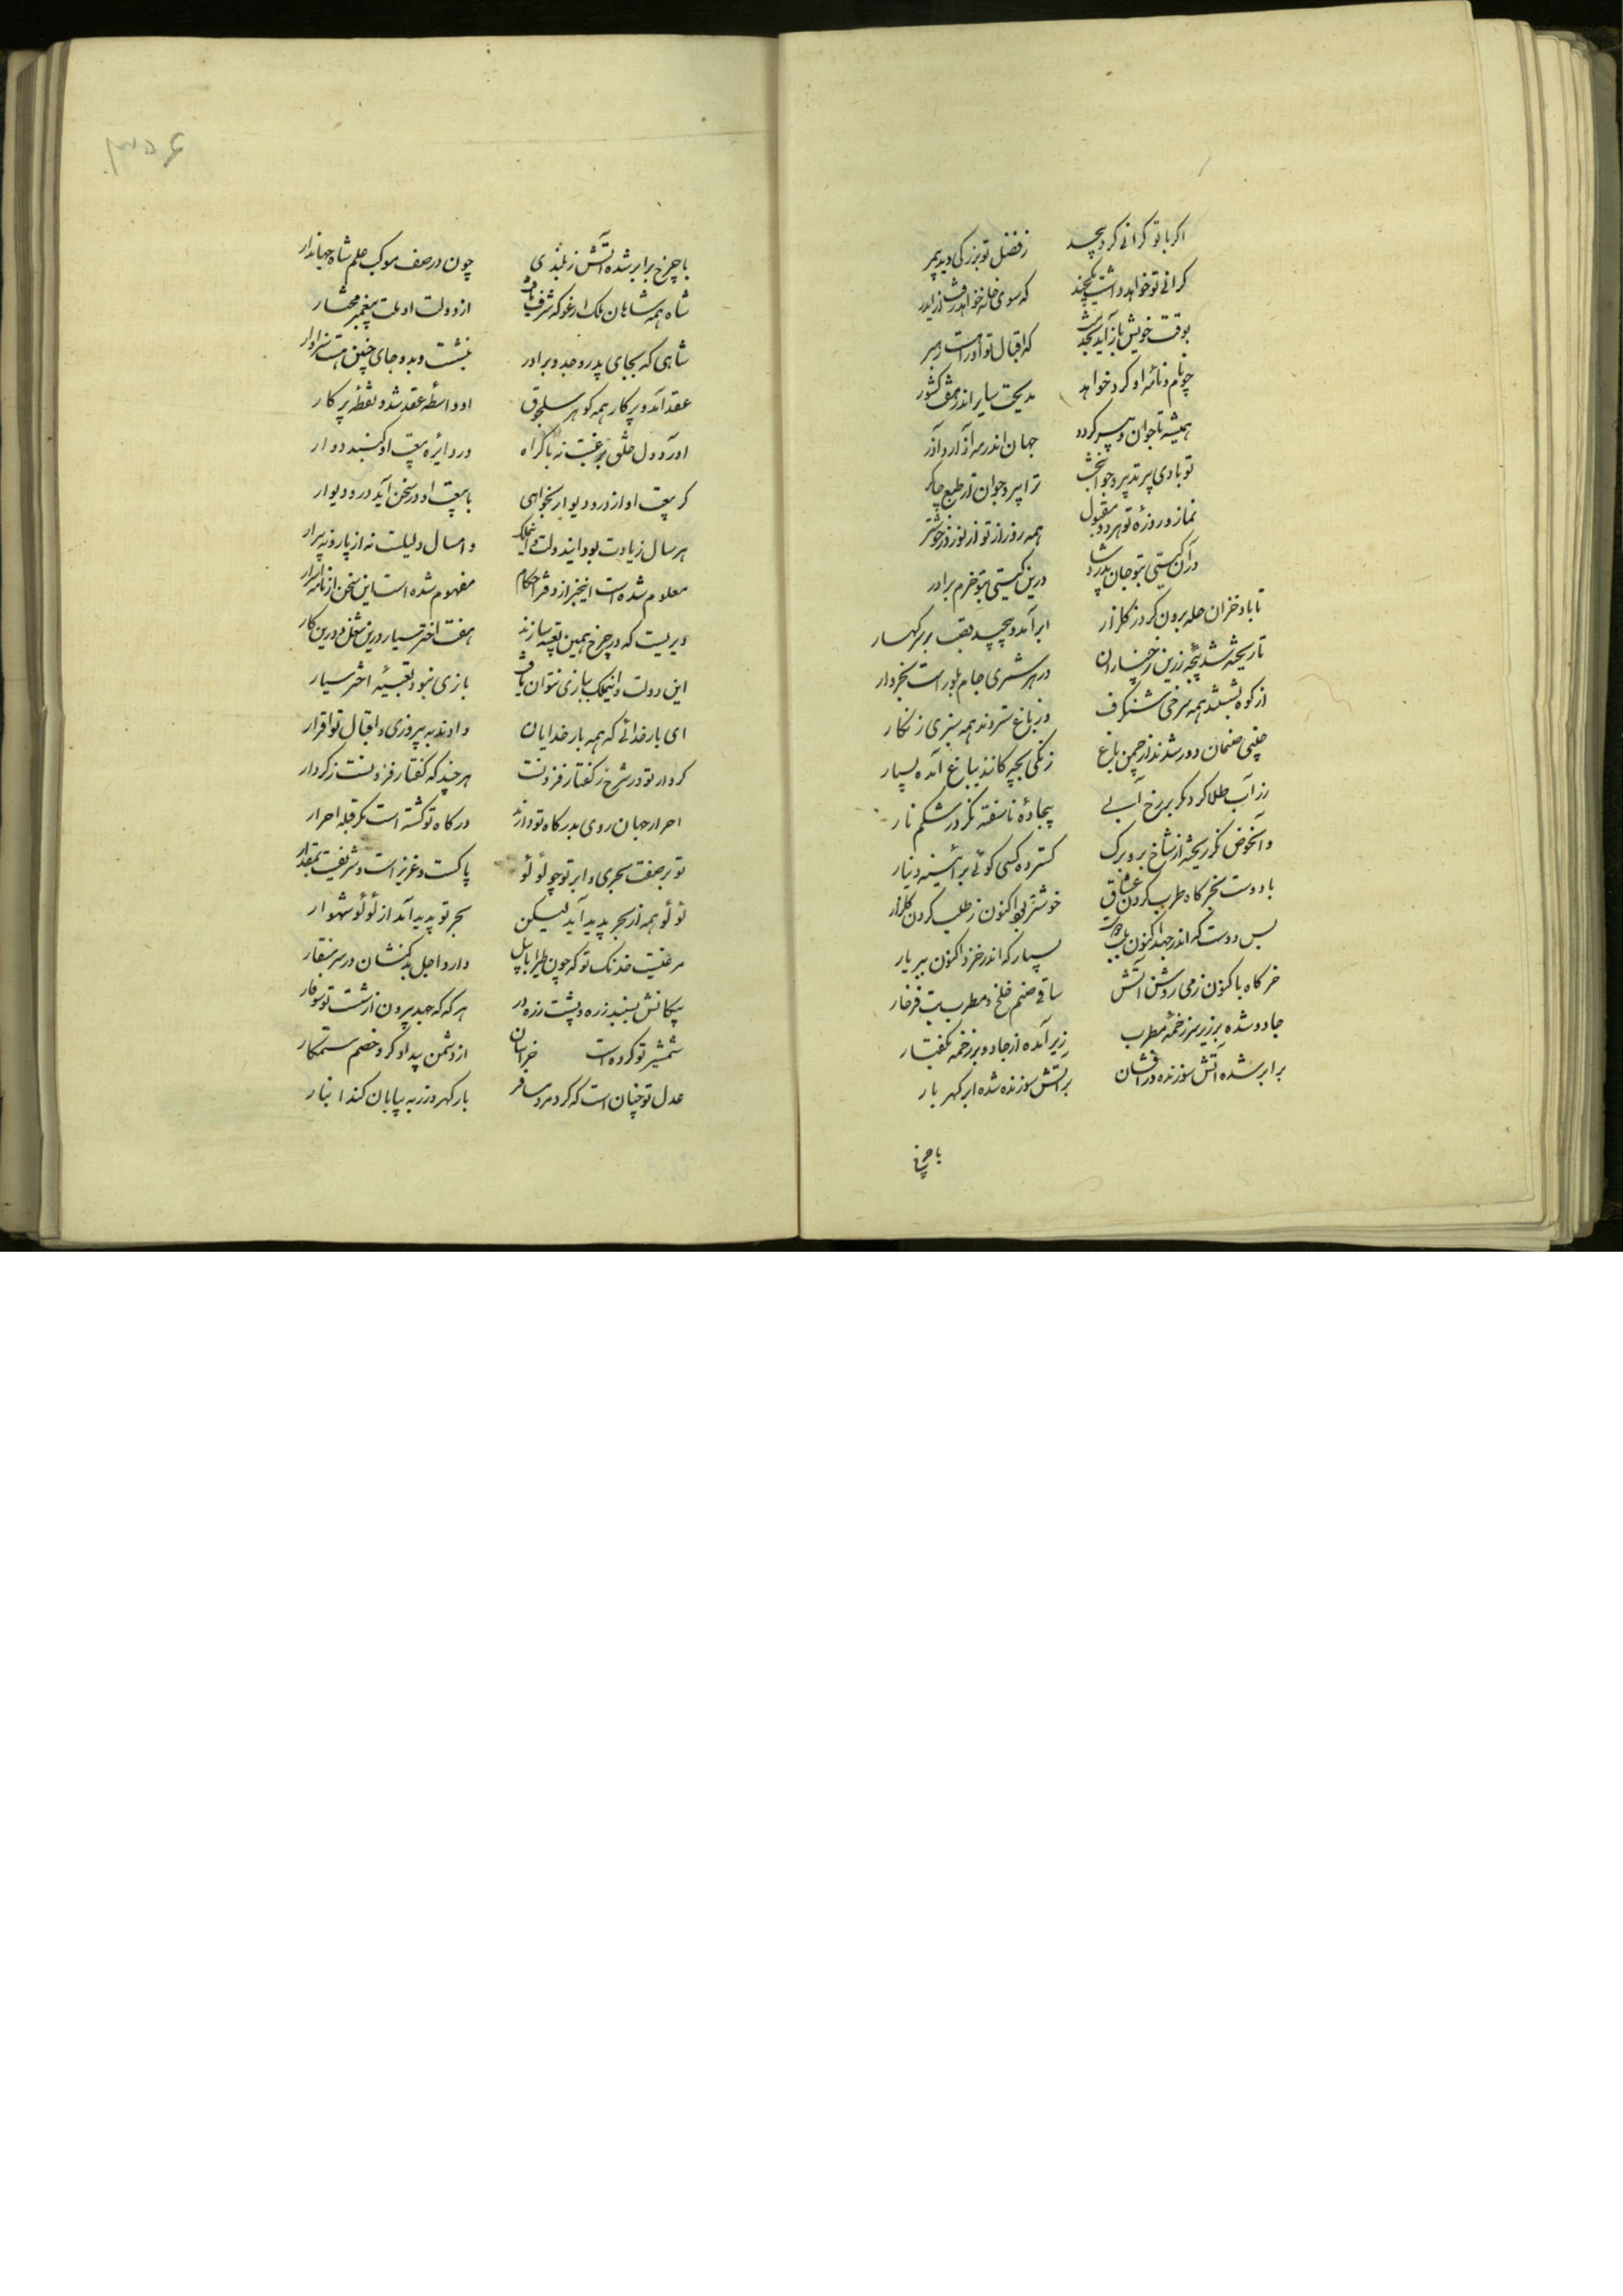 اکر با تو کرانی کرد یکچند ز فضل تو بزرکی دید بیمر
کرانی تو خواهد داشت یکچند که سوی خانه خواهد رفت از ایدر
بوقت خویش باز آید بخدمت که اقبال تو او راهست رهبر
چو نام و نامه او کرد خواهد مدیحت سایر اندر هفت کشور
همیشه تا جوان و پیر کردد جهان اندر مه آذار و آذر
تو بادی پیر تدبیر و جوانبخت ترا پیر و جوان از طبع چاکر
نماز و روزه تو هر دو مقبول همه روز از تو از نوروز خوشتر
در آن کیتی بتو جان پدر شاد درین کیتی بتو خرم برادر
تا باد خزان حله برون کرد ز کلزار ابر آمد و پیچید قصب بر سر کهسار
تا ریخته شد پنجه زرین ز چناران در هر شمری جام بلور است بخروار
از کوه بشستند همه سرخی شنکرف وز باغ ستردند همه سبزی زنکار
چینی صنمان دور شدند از چمن باغ زنکی بچه کانند بباغ آمده بسیار
رز آب طلا کرد مکر بر رخ آبی بیجاده ناسفته نکر در شکم نار
وآنحوض نکر ریخته از شاخ برو برک کسترده کسی کوئی بر آئینه دینار
با دوست بخرکاه طرب کردن عشاق خوشتر بود اکنون ز طلب کردن کلزار
بس دوست که اندر جهد اکنون بسپار که اندر خزد اکنون ببر یار
خرکاه با کنون ز می روشن و آتش ساقی صنم خلخ و مطرب بت فرخار
جادو شده بر زیر سر زخمه مطرب زیر آمده از جادو بر زخمه بکفتار
بر ابر شده آتش سوزنده درافشان بر آتش سوزنده شده ابر کهر بار
با چرخ
با چرخ برابر شده آتش ز بلندی چون در صف موکب علم شاه جهاندار
شاه همه شاهان ملک ارغو که شرف یافت از دولت او ملت پیغمبر مختار
شاهی که بجای پدر و جد و برادر بنشست و بدو جای چنین هست سزاوار
عقد آمد و پرکار همه کوهر سلجوق او واسطه عقد شد و نقطه پرکار
او آورد دل خلق برغبت نه باکراه در دایره بیعت او کنبد دوار
کر بیعت او از در و دیوار بخواهی با بیعت او در سخن آید در و دیوار
هر سال زیادت بود ایندولت و اینملک و امسال دلیلست نه از پار و نه پیرار
معلوم شده است اینخبر از دفتر احکام مفهوم شده است این سخن از نامه اسرار
دیریست که در چرخ همین تعبیه سازند هفت اختر سیار درین شغل و درین کار
این دولت و اینملک ببازی نتوان یافت بازی نبود تعبیه اختر سیار
ای بار خدائی که همه بار خدایان دادند به پیروزی و اقبال تو اقرار
کردار تو در شرح ز کفتار فزونست هر چند که کفتار فزونست ز کردار
احرار جهان روی بدرکاه تو دارند درکاه تو کشته است مکر قبله احرار
تو بر صفت بحری و ابر تو چو لؤلؤ پاکست و عزیز است و شریفست بمقدار
لؤلؤ همه از بحر پدید آید لیکن بحر تو پدید آمد از لؤلؤ شهوار
مرغیست خدنک تو که چون طیر ابابیل دارد اجل بدکنشان در سر منقار
پیکانش ببیند زره و پشت زره در هر که که جهد بیرون از شست تو سوفار
شمشیر تو کرده است خراسان از دشمن بیدادکر و خصم ستمکار
عدل تو چنان است که کر مرد مسافر بار کهر و زر به بیابان کند انبار